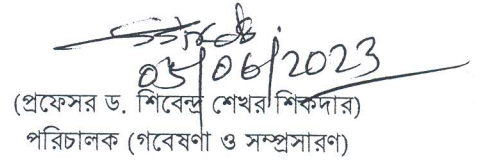 05/06/2023
(প্রফেসর ড. শিবেন্দ্র শেখর শিকদার)
পরিচালক (গবেষণা ও সম্প্রসারণ)